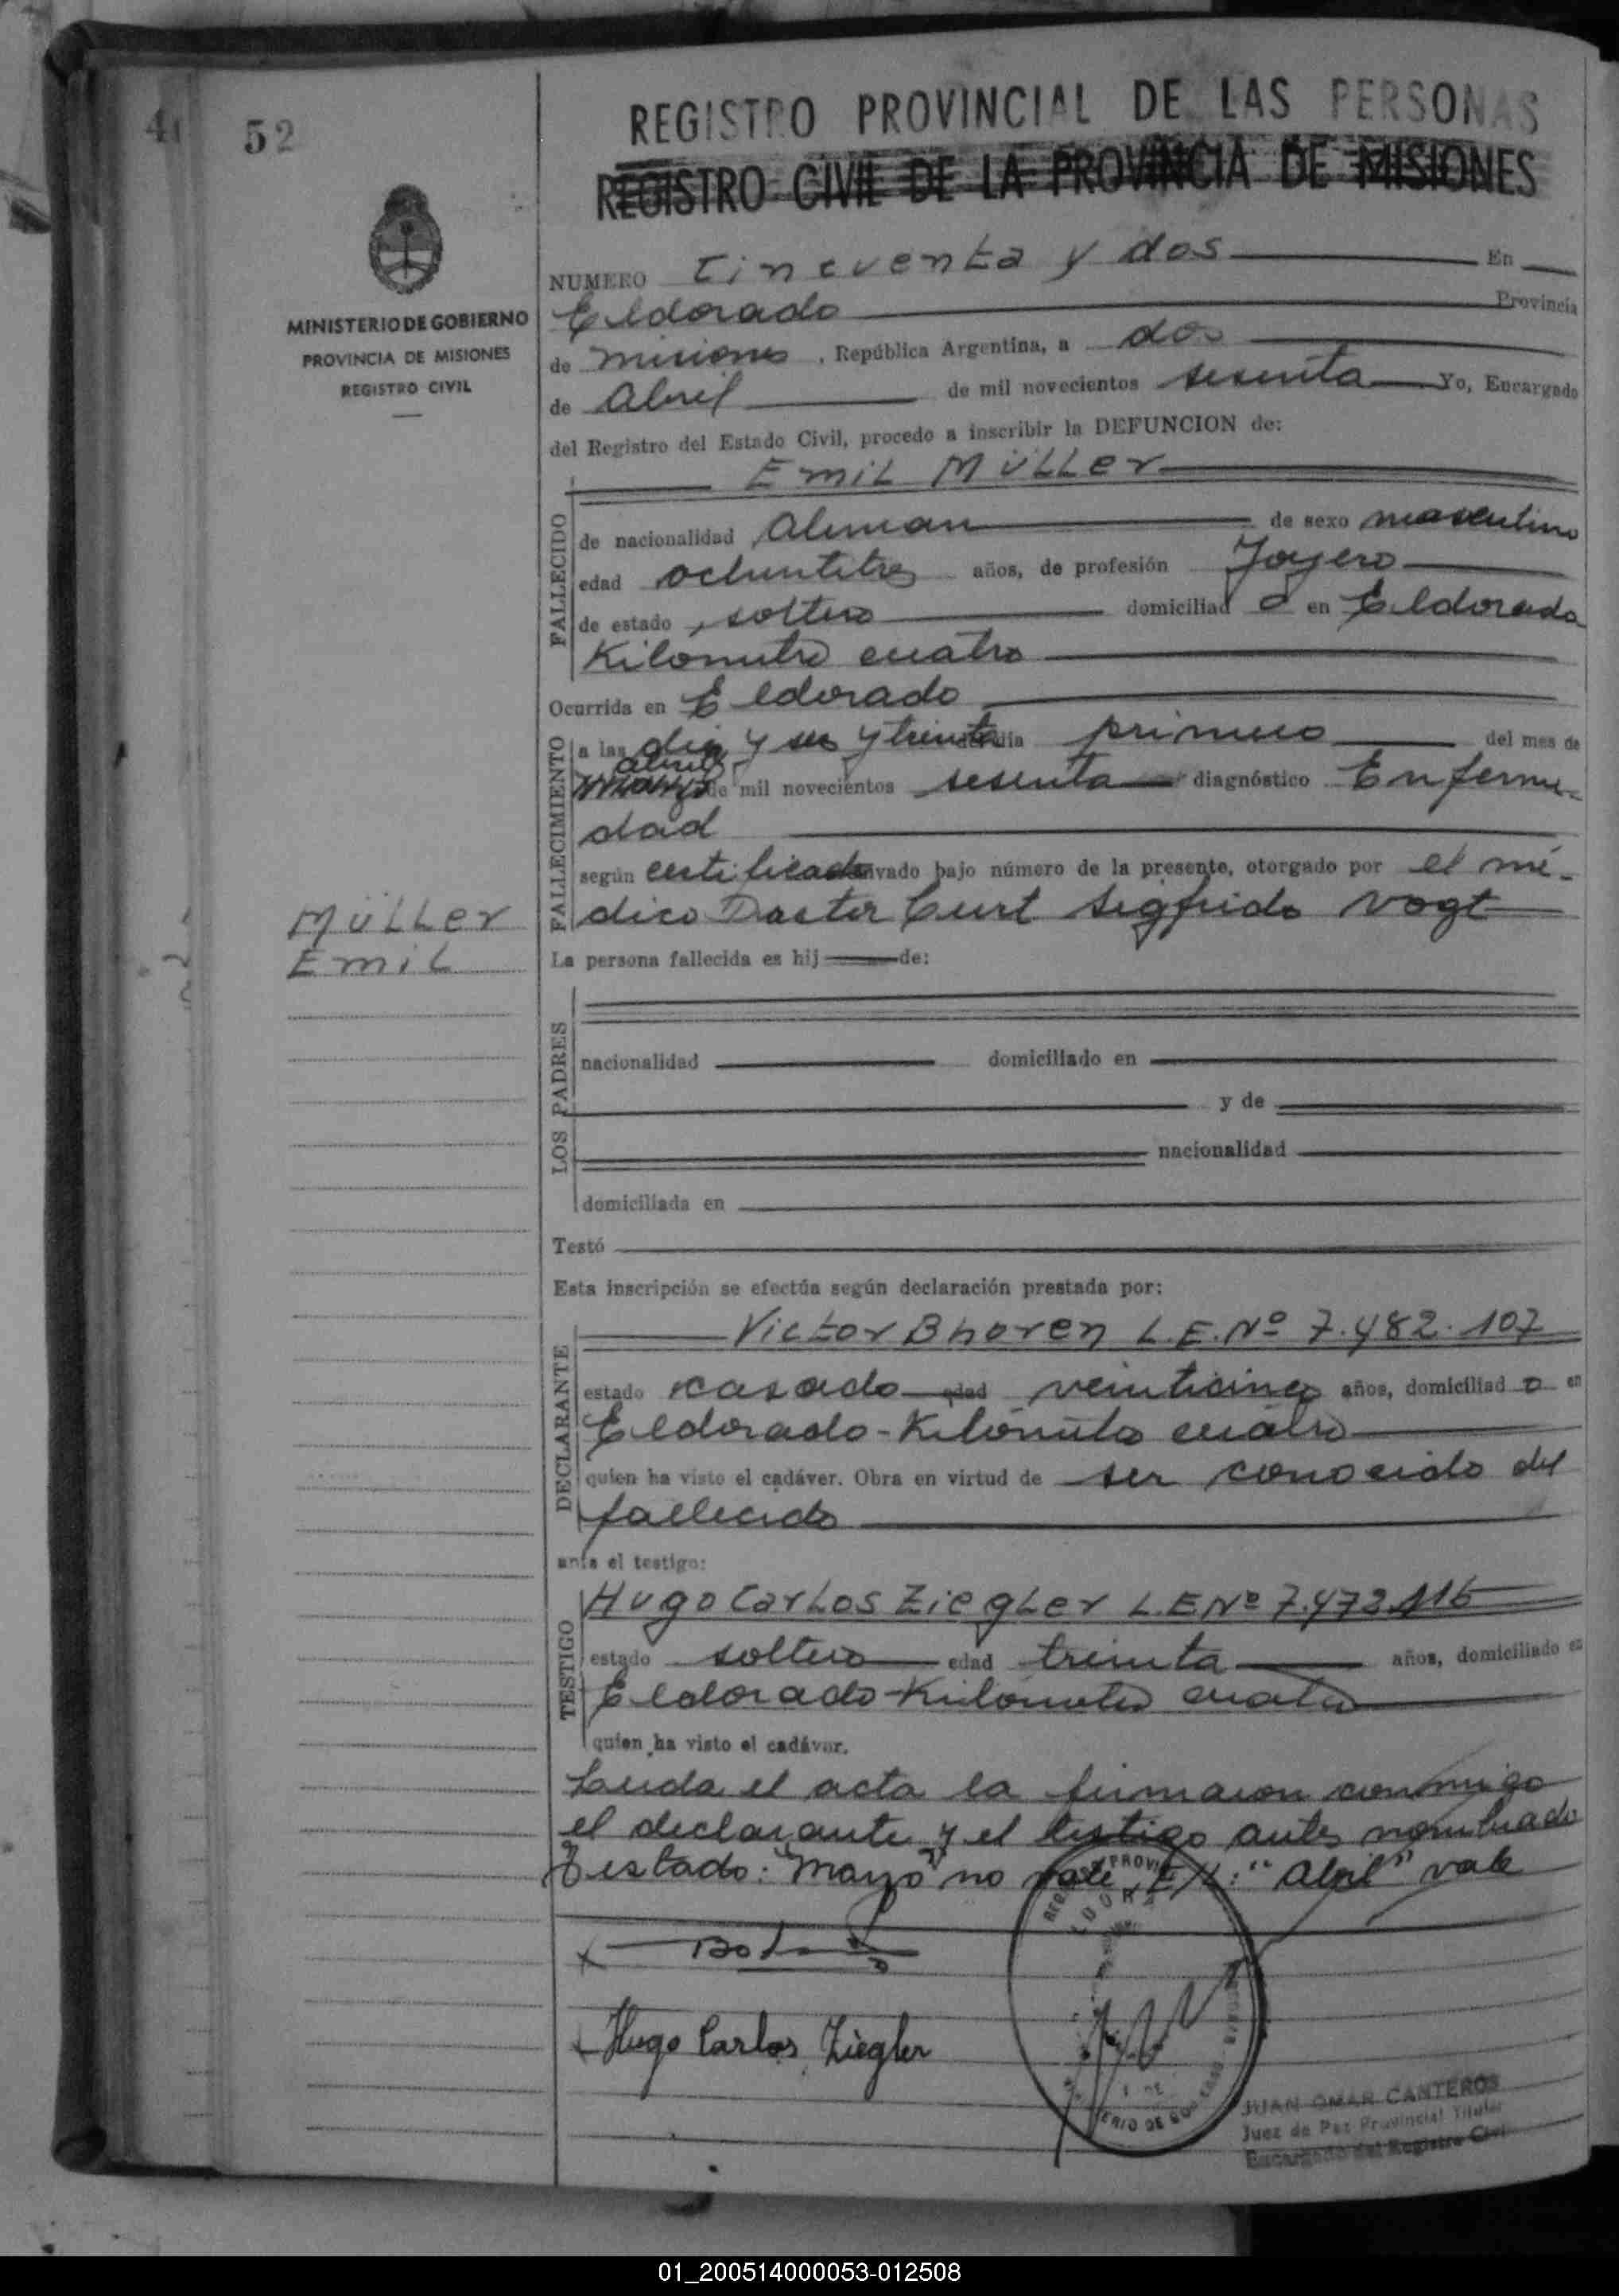 52
MINISTERIO DE GOBIERNO
PROVINCIA DE MISIONES
REGISTRO CIVIL
REGISTRO PROVINCIAL DE LAS PERSONAS
REGISTRO CIVIL DE LA PROVINCIA DE MISIONES
NUMERO Cincuenta y dos En
Eldorado Provincia
de Misiones , República Argentina, a dos
de Abril de mil novecientos sesenta Yo, Encargado
del Registro del Estado Civil, procedo a inscribir la DEFUNCION de:
Emil Müller
FALLECIDO
de nacionalidad Aleman de sexo masculino
edad ochentitres años, de profesión Joyero
de estado soltero domiciliado en Eldorado
Kilometro cuatro
Ocurrida en Eldorado
FALLECIMIENTO
a las diez y seis y treinta del día primero del mes de
abril
marzo de mil novecientos sesenta diagnóstico Enferme-
dad
según certificado archivado bajo número de la presente, otorgado por el mé-
dico Doctor Curt Sigfrido Vogt
Müller
Emil
La persona fallecida es hij de:
LOS PADRES
nacionalidad domiciliado en
y de
nacionalidad
domiciliada en
Testó
Esta inscripción se efectúa según declaración prestada por:
DECLARANTE
Victor Bhoren L.E. Nº 7.482.107
estado casado edad veinticinco años, domiciliado en
Eldorado - Kilómetro cuatro
quien ha visto el cadáver. Obra en virtud de ser conocido del
fallecido
ante el testigo:
TESTIGO
Hugo Carlos Ziegler L.E Nº 7.473.116
estado soltero edad treinta años, domiciliado en
Eldorado - Kilómetro cuatro
quien ha visto el cadáver.
Leida el acta la firmaron conmigo
el declarante y el testigo antes nombrado
Testado: "Marzo" no vale, E/L: "Abril" vale
Hugo Carlos Ziegler
JUAN OMAR CANTEROS
Juez de Paz Provincial Titular
Encargado del Registro Civil
01_200514000053-012508